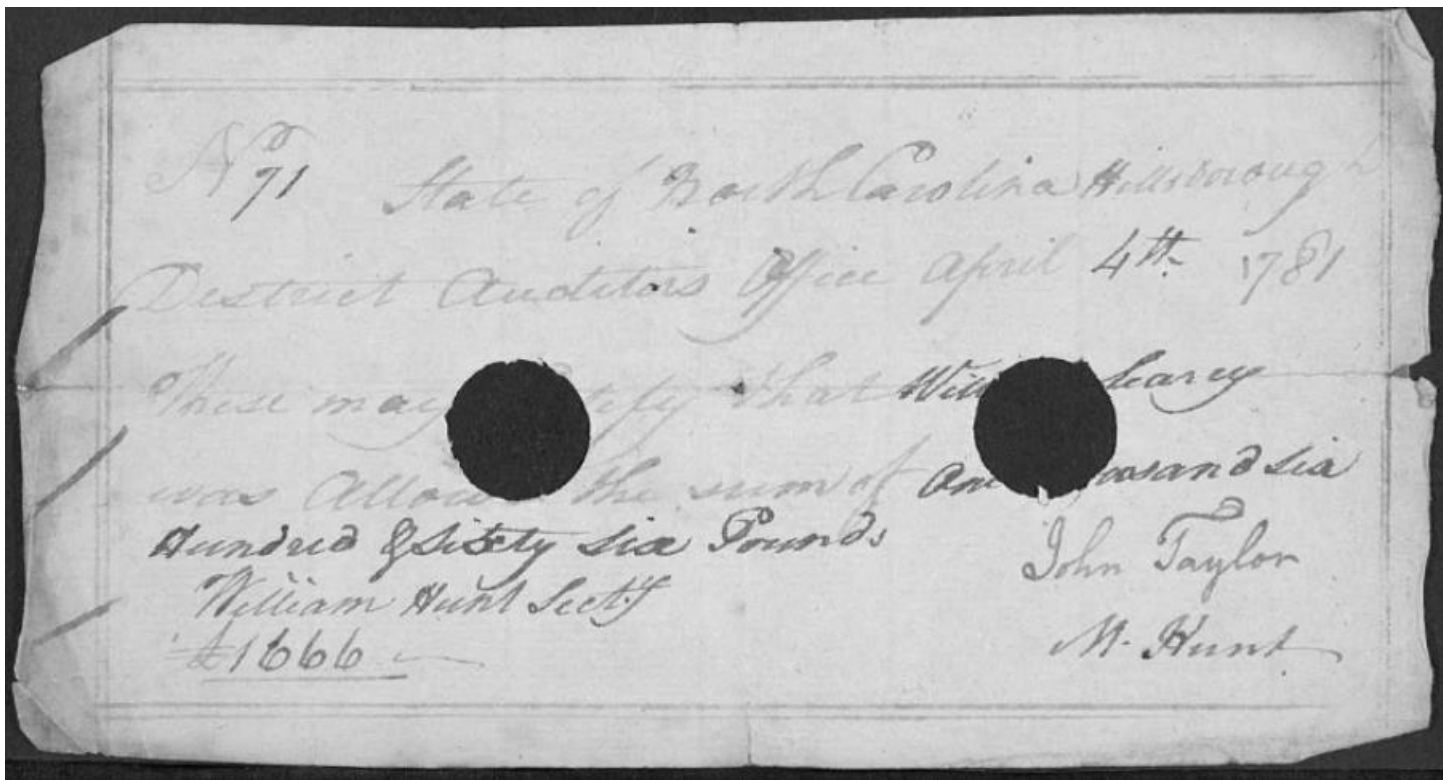 No 71 State of North Carolina Hillsborough
District Auditors Office April 4th 1781
These may tify that Will Searcy
was Allow the sum of One ousand six
Hundred & Sixty six Pounds
William Hunt Secty
£1666
John Taylor
M. Hunt